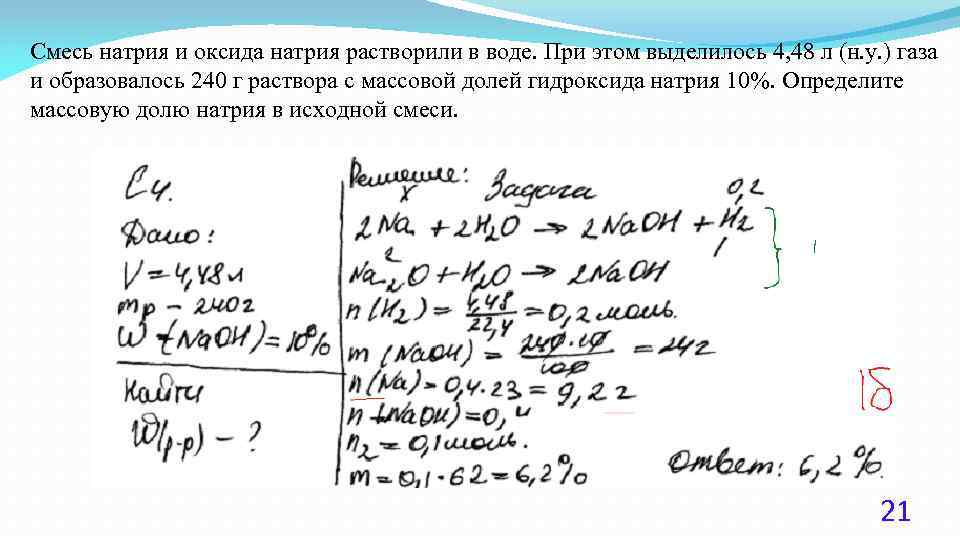 Смесь натрия и оксида натрия растворили в воде. При этом выделилось 4,48 л (н.у.) газа
и образовалось 240 г раствора с массовой долей гидроксида натрия 10%. Определите
массовую долю натрия в исходной смеси.
С4.
Дано:
V = 4,48 л
mр – 240г
W (NaOH) = 10%
Найти
W(р-р) – ?
Решение: Задача
x 0,2
2Na + 2H2O → 2NaOH + H2
2 1
Na2O + H2O → 2NaOH
n(H2) = 4,48/22,4 = 0,2 моль.
m (NaOH) = 240·10/100 = 24г
n(Na) = 0,4·23 = 9,2 г
n(NaOH) = 0,4
n2 = 0,1 моль.
m = 0,1·62 = 6,2%
Ответ: 6,2%.
1б
21